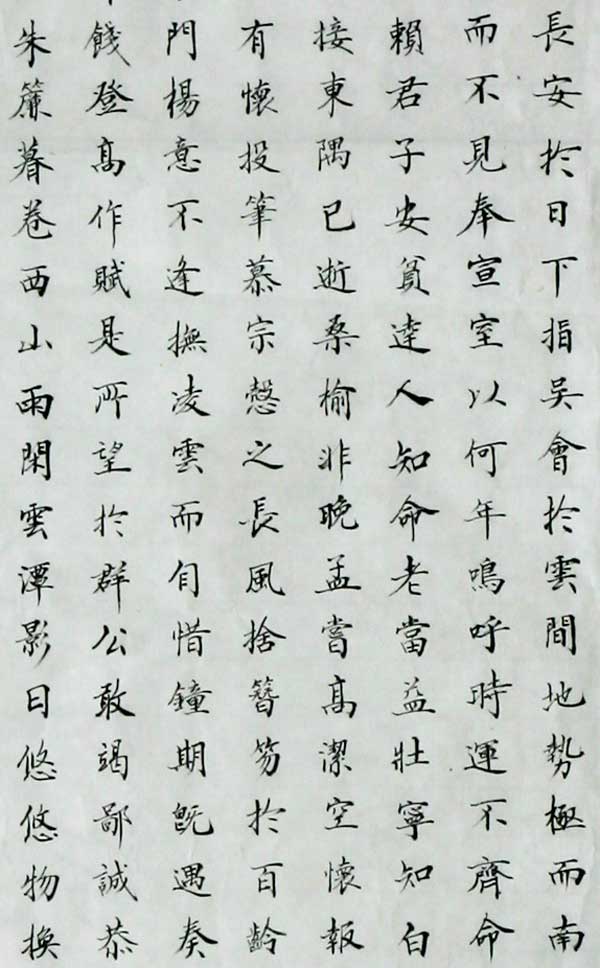 長安於日下指吳會於雲間地勢極而南
而不見奉宣室以何年嗚呼時運不齊命
賴君子安貧達人知命老當益壯寧知白
接東隅已逝桑榆非晚孟嘗高潔空懷報
有懷投筆慕宗愨之長風捨簪笏於百齡
門楊意不逢撫凌雲而自惜鐘期既遇奏
餞登高作賦是所望於群公敢竭鄙誠恭
朱簾暮卷西山雨閑雲潭影日悠悠物換